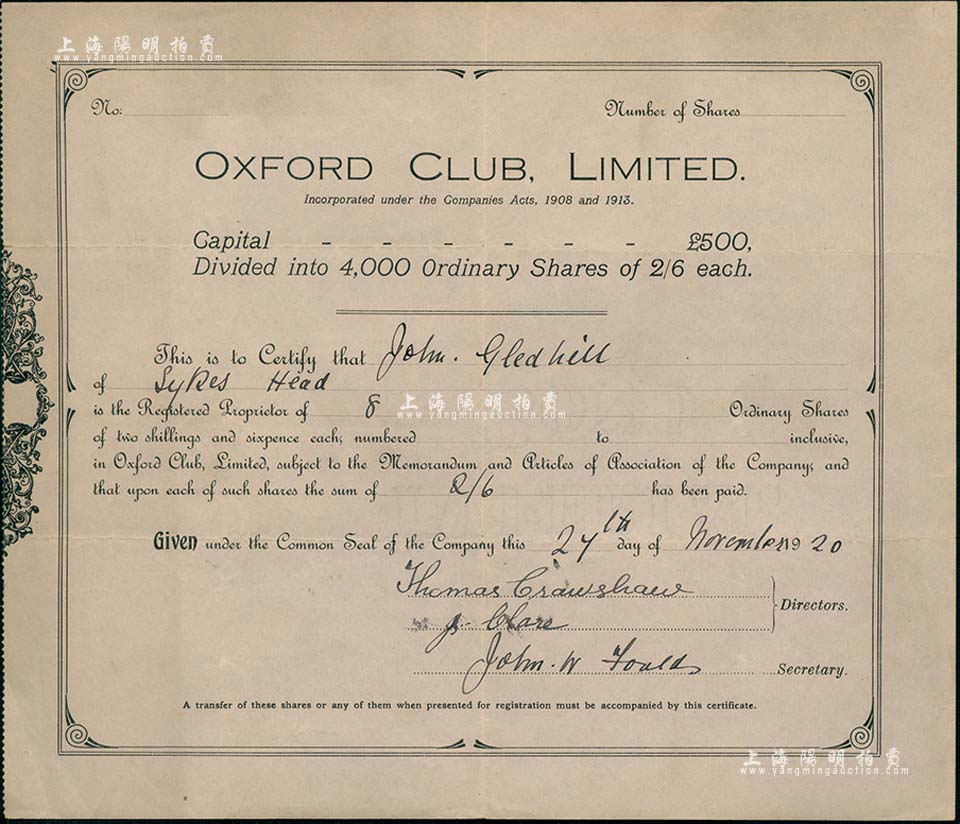 上海陽明拍賣
www.yangmingauction.com
No:
Number of Shares
OXFORD CLUB, LIMITED.
Incorporated under the Companies Acts, 1908 and 1913.
Capital - - - - - - £500,
Divided into 4,000 Ordinary Shares of 2/6 each.
This is to Certify that John. Gledhill
of Sykes Head
is the Registered Proprietor of 8 Ordinary Shares
上海陽明拍賣
www.yangmingauction.com
of two shillings and sixpence each; numbered to inclusive,
in Oxford Club, Limited, subject to the Memorandum and Articles of Association of the Company; and
that upon each of such shares the sum of 2/6 has been paid.
Given under the Common Seal of the Company this 27th day of November 1920
Thomas Crawshaw
Directors.
John. W Foulds Secretary.
A transfer of these shares or any of them when presented for registration must be accompanied by this certificate.
上海陽明拍賣
www.yangmingauction.com